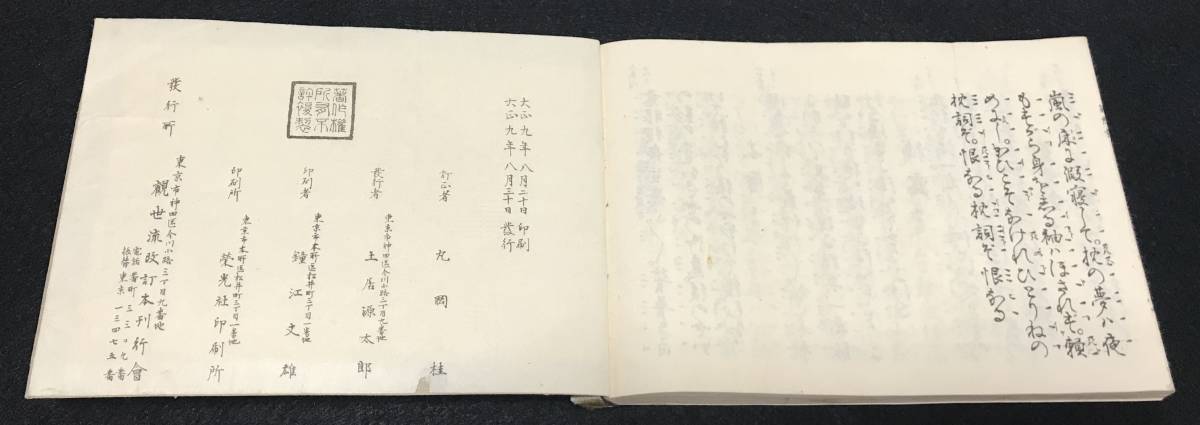 嵐の床に假寝して。枕の夢ハ夜
もすがら身を知る袖ハほされず。頼
めにしわひこそなけれひとりねの
枕詞ぞ恨ある枕詞ぞ恨ある
大正九年八月二十日印刷
大正九年八月三十日發行
訂正者 丸岡桂
東京市神田區今川小路三丁目九番地
發行者 土居源太郎
東京市本所區松井町三丁目一番地
印刷者 鐘江文雄
東京市本所區松井町三丁目一番地
印刷所 榮光社印刷所
著作權
所有不
許複製
發行所
東京市神田區今川小路三丁目九番地
觀世流改訂本刊行會
電話番町三三〇九番
振替東京一三四七五番